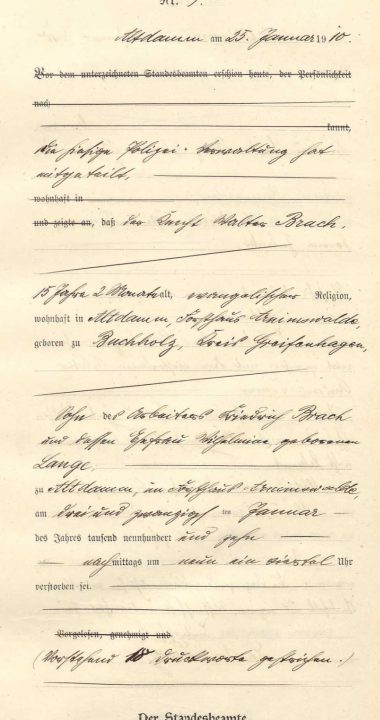 Nr. 7.
Altdamm am 25. Januar 1910.
Vor dem unterzeichneten Standesbeamten erschien heute, der Persönlichkeit
nach
kannt,
die hiesige Polizei-Verwaltung hat
mitgeteilt,
wohnhaft in
und zeigte an, daß der Knecht Walter Brach,
15 Jahre 2 Monate alt, evangelischer Religion,
wohnhaft in Altdamm, Forsthaus Arnimswalde,
geboren zu Buchholz, Kreis Greifenhagen,
Sohn des Arbeiters Friedrich Brach
und dessen Ehefrau Wilhelmine, geborenen
Lange,
zu Altdamm, im Forsthaus Arnimswalde,
am drei und zwanzigsten Januar
des Jahres tausend neunhundert und zehn
nachmittags um neun ein viertel Uhr
verstorben sei.
Vorgelesen, genehmigt und
(Vorstehend 18 Druckworte gestrichen.)
Der Standesbeamte